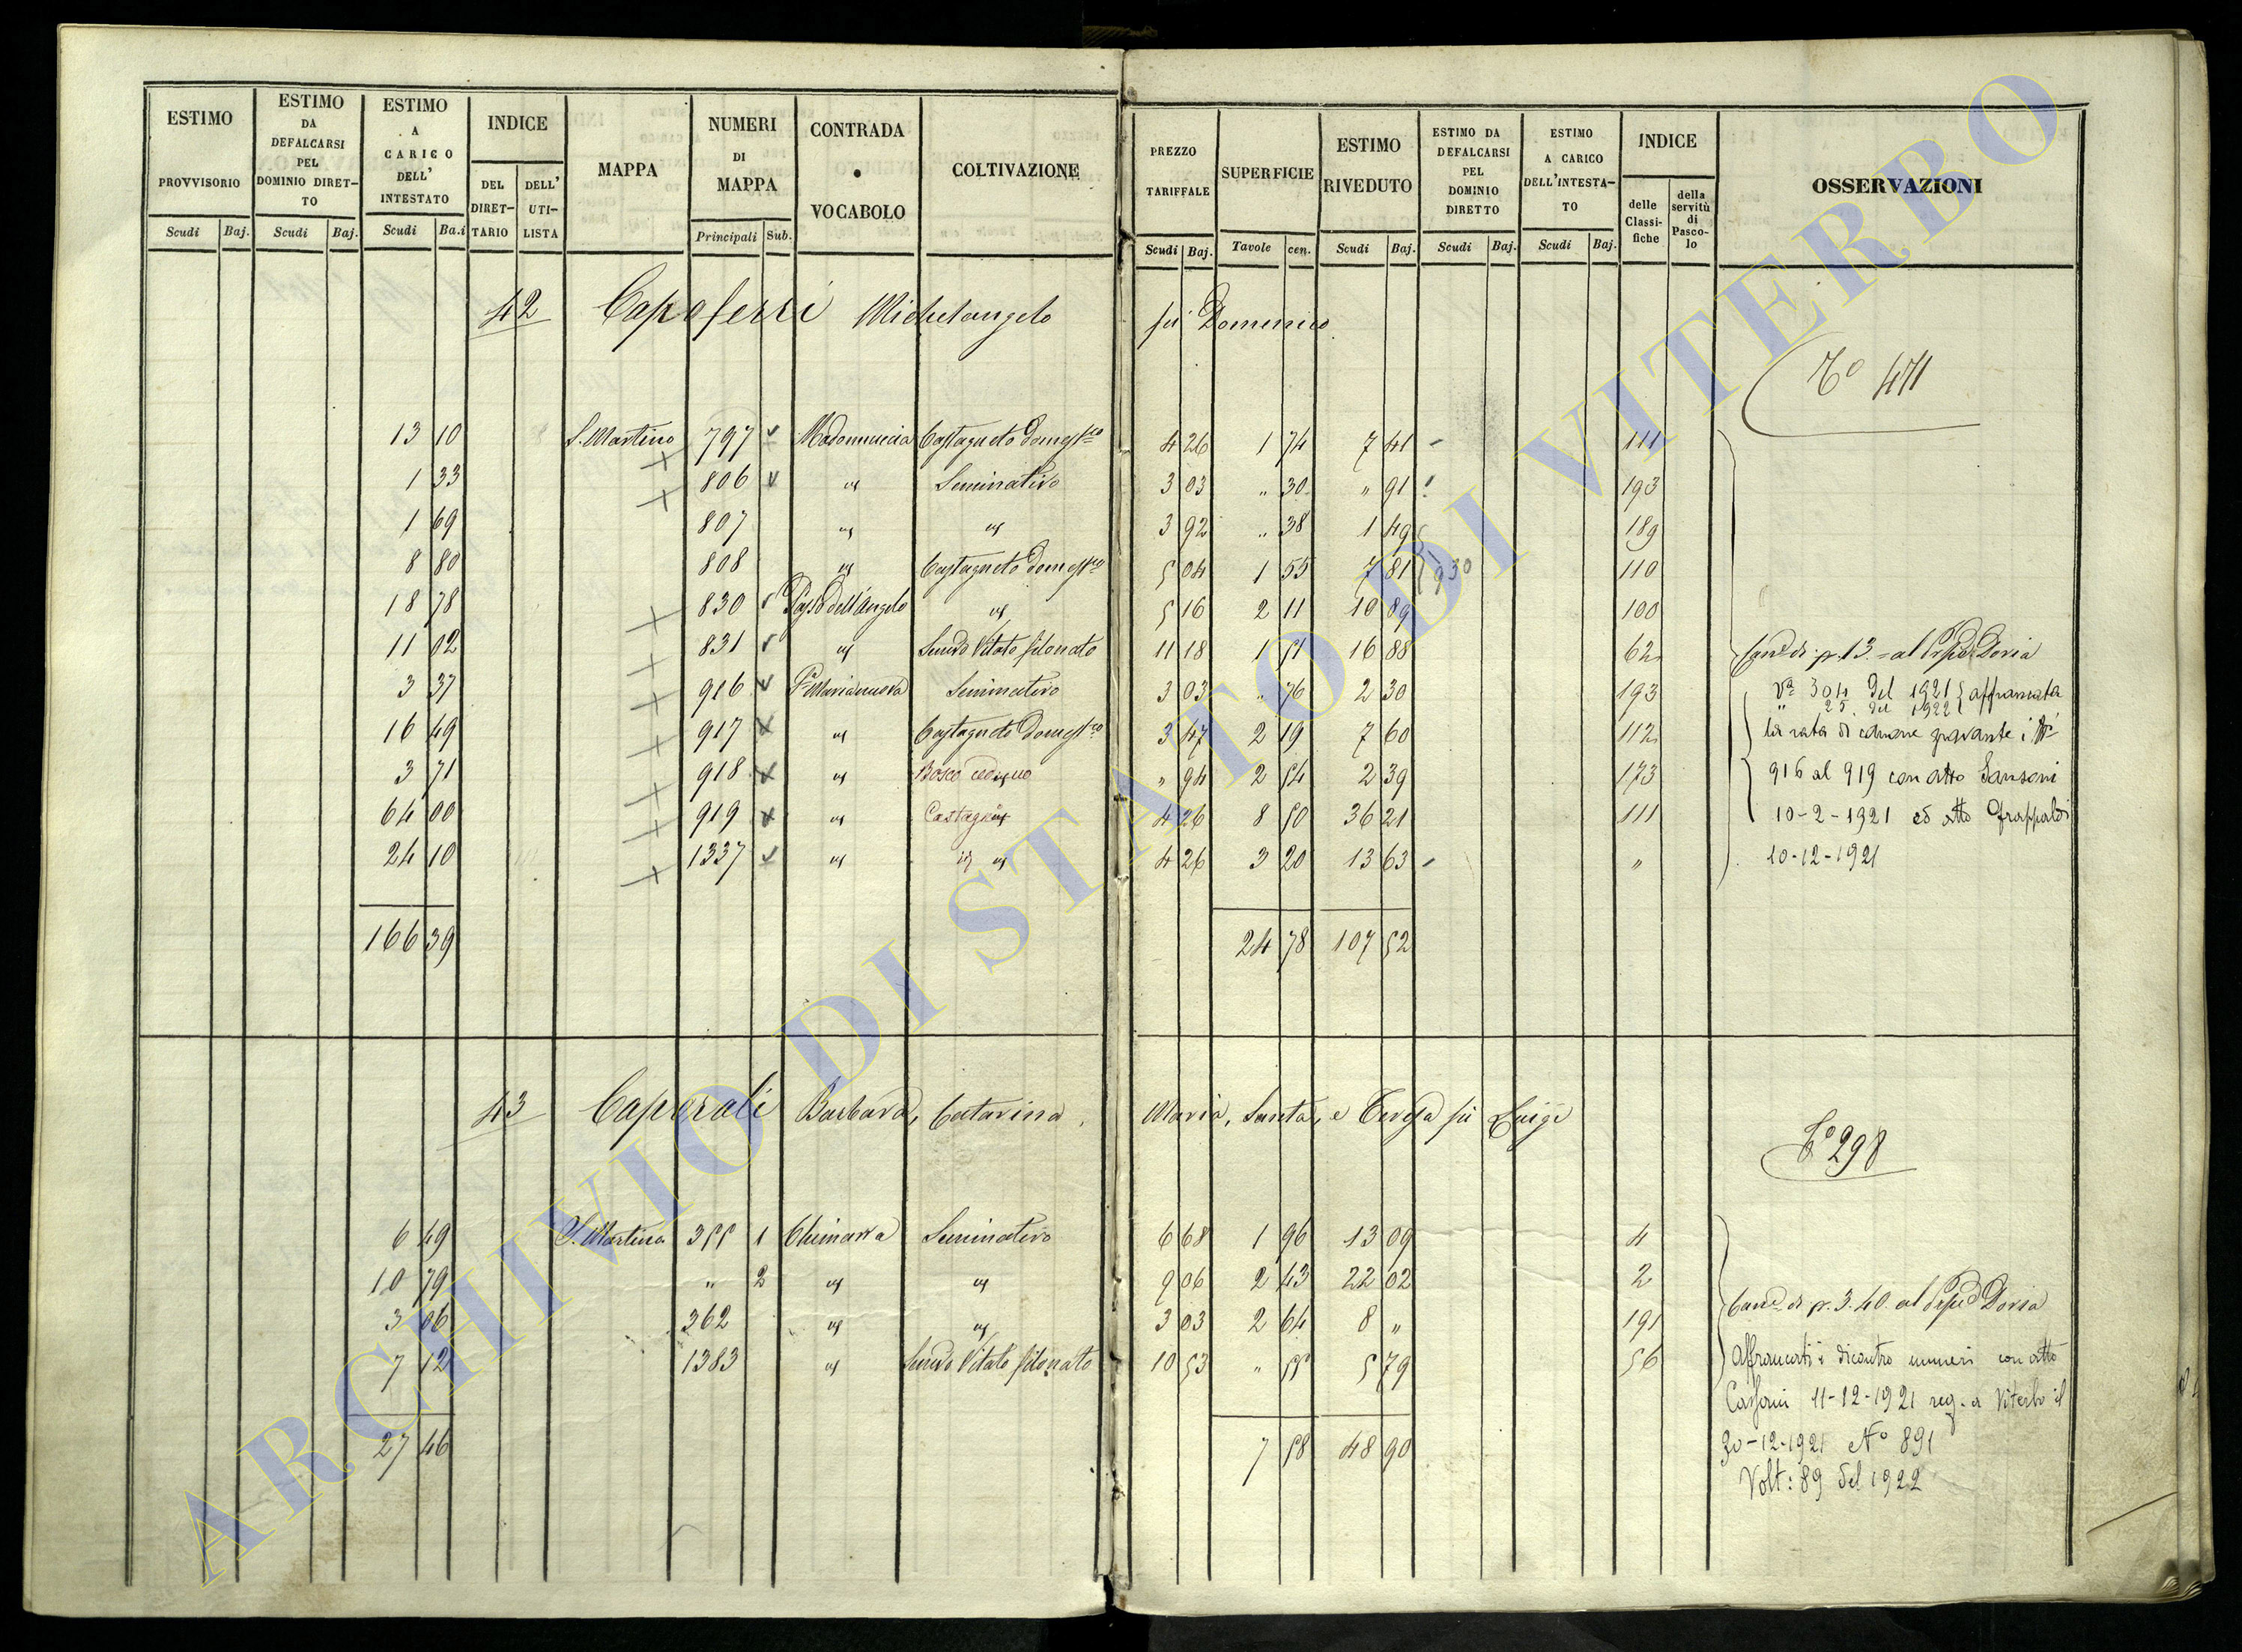 ESTIMO PROVVISORIO Scudi Baj.
ESTIMO DA DEFALCARSI PEL DOMINIO DIRET-TO Scudi Baj.
ESTIMO A CARICO DELL' INTESTATO Scudi Ba.i
INDICE DEL DIRET-TARIO DELL' UTI-LISTA
MAPPA
NUMERI DI MAPPA Principali Sub.
CONTRADA o VOCABOLO
COLTIVAZIONE
PREZZO TARIFFALE Scudi Baj.
SUPERFICIE Tavole cen.
ESTIMO RIVEDUTO Scudi Baj.
ESTIMO DA DEFALCARSI PEL DOMINIO DIRETTO Scudi Baj.
ESTIMO A CARICO DELL'INTESTA-TO Scudi Baj.
INDICE delle Classi-fiche della servitù di Pasco-lo
OSSERVAZIONI
42 Capoferri Michelangelo fu Domenico
471
13 10 S. Martino 797 Madonnuccia Castagneto Domestco 4 26 1 74 7 41 111
1 33 806 " Seminativo 3 03 " 30 " 91 193
1 69 807 " " 3 92 " 38 1 49 189
8 80 808 " Castagneto Domestco 5 04 1 55 7 81 930 110
18 78 830 Passo dell'Angelo " 5 16 2 11 10 89 100
11 02 831 " Semivo Vitato filonato 11 18 1 51 16 88 62 di p. 13 = al Doria
3 37 916 Seminativo 3 03 " 76 2 30 193 Va 304 del 1921 } affrancata
" 25 del 1922
16 49 917 " Castagneto Domestco 3 47 2 19 7 60 112 la rata di canone gravante i Ni
3 71 918 " Bosco ceduo " 94 2 54 2 39 173 916 al 919 con atto Sansoni
64 00 919 " Castagno 4 26 8 50 36 21 111 10-2-1921 ed atto Grappaldi
24 10 1337 " " 4 26 3 20 13 63 " 10-12-1921
166 39 24 78 107 52
43 Caporali Barbara, Catarina, Maria, Santa, e Teresa fu Luigi
298
6 49 S. Martino 355 1 Chimarra Seminativo 6 68 1 96 13 09 4
10 79 " 2 " " 9 06 2 43 22 02 2
3 06 362 " " 3 03 2 64 8 " 191 di p. 3.40 al Doria
7 12 1383 " Semivo Vitato filonato 10 53 " 55 5 79 56 Affrancati i dicontro numeri con atto
11-12-1921 reg. a Viterbo il
27 46 7 58 48 90 30-12-1921 No 891
Volt: 89 del 1922
ARCHIVIO DI STATO DI VITERBO